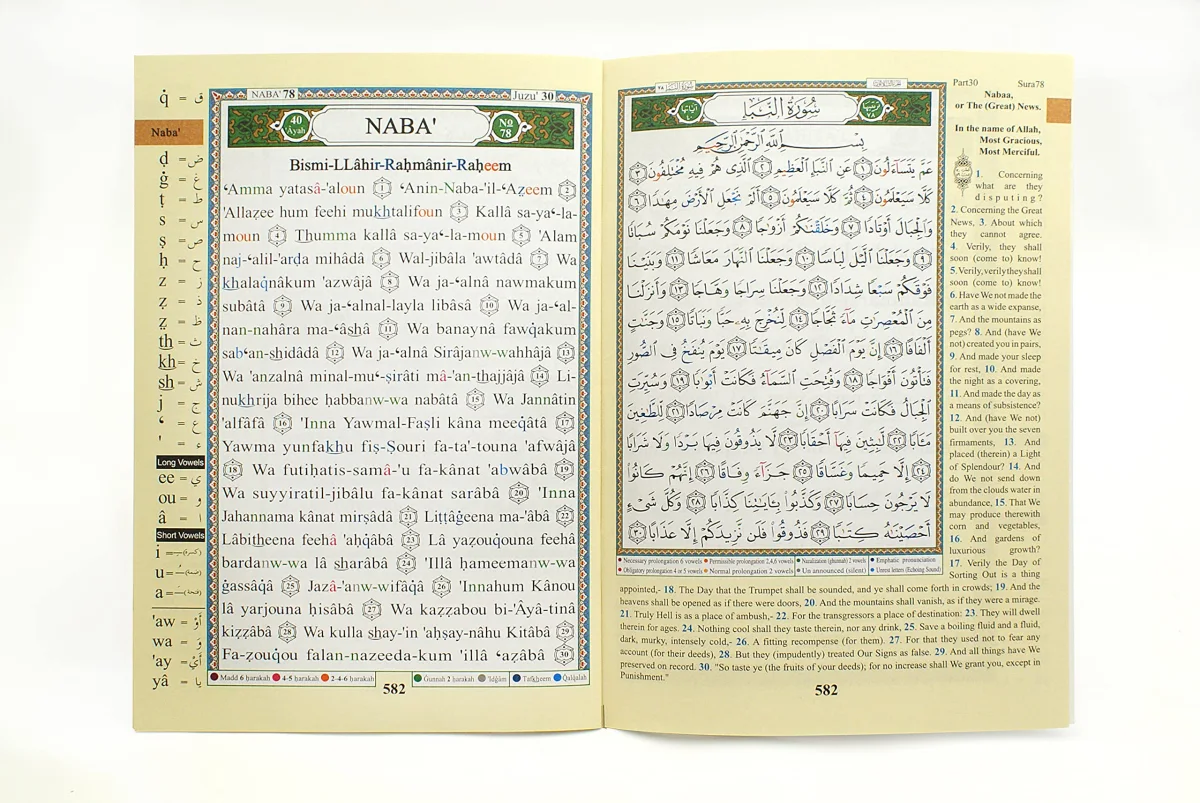 q̇ = ق
Naba'
ḍ = ض
ġ = غ
ṭ = ط
s = س
ṣ = ص
ḥ = ح
z = ز
ẓ = ذ
ẓ = ظ
th = ث
kh = خ
sh = ش
j = ج
ʻ = ع
' = ء
Long Vowels
ee = ي
ou = و
â = ا
Short Vowels
i =
u =
a =
'aw = أَوْ
wa = و
'ay = أَيْ
yâ = يا
NABA' 78
Juzu' 30
40
'Âyah
NABA'
No
78
Bismi-LLâhir-Raḥmânir-Raḥeem
ʻAmma yatasâ-'aloun 1 ʻAnin-Naba-'il-ʻAẓeem 2
'Allaẓee hum feehi mukhtalifoun 3 Kallâ sa-yaʻ-la-
moun 4 Thumma kallâ sa-yaʻ-la-moun 5 'Alam
naj-ʻalil-'arḍa mihâdâ 6 Wal-jibâla 'awtâdâ 7 Wa
khalaq̇nâkum 'azwâjâ 8 Wa ja-ʻalnâ nawmakum
subâtâ 9 Wa ja-ʻalnal-layla libâsâ 10 Wa ja-ʻal-
nan-nahâra ma-ʻâshâ 11 Wa banaynâ fawq̇akum
sabʻan-shidâdâ 12 Wa ja-ʻalnâ Sirâjanw-wahhâjâ 13
Wa 'anzalnâ minal-muʻ-ṣirâti mâ-'an-thajjâjâ 14 Li-
nukhrija bihee ḥabbanw-wa nabâtâ 15 Wa Jannâtin
'alfâfâ 16 'Inna Yawmal-Faṣli kâna meeq̇âtâ 17
Yawma yunfakhu fiṣ-Ṣouri fa-ta'-touna 'afwâjâ
18 Wa futiḥatis-samâ-'u fa-kânat 'abwâbâ 19
Wa suyyiratil-jibâlu fa-kânat sarâbâ 20 'Inna
Jahannama kânat mirṣâdâ 21 Liṭṭâġeena ma-'âbâ 22
Lâbitheena feehâ 'aḥq̇âbâ 23 Lâ yaẓouq̇ouna feehâ
bardanw-wa lâ sharâbâ 24 'Illâ ḥameemanw-wa
ġassâq̇â 25 Jazâ-'anw-wifâq̇â 26 'Innahum Kânou
lâ yarjouna ḥisâbâ 27 Wa kaẓẓabou bi-'Âyâ-tinâ
kiẓẓâbâ 28 Wa kulla shay-'in 'aḥṣay-nâhu Kitâbâ 29
Fa-ẓouq̇ou falan-nazeeda-kum 'illâ ʻaẓâbâ 30
Madd 6 ḥarakah 4-5 ḥarakah 2-4-6 ḥarakah Ġunnah 2 ḥarakah 'Idġâm Tafkheem Qalqalah
582
سُورَةُ النَّبَإِ
بِسْمِ اللَّهِ الرَّحْمَٰنِ الرَّحِيمِ
عَمَّ يَتَسَاءَلُونَ ١ عَنِ النَّبَإِ الْعَظِيمِ ٢ الَّذِي هُمْ فِيهِ مُخْتَلِفُونَ ٣
كَلَّا سَيَعْلَمُونَ ٤ ثُمَّ كَلَّا سَيَعْلَمُونَ ٥ أَلَمْ نَجْعَلِ الْأَرْضَ مِهَادًا ٦
وَالْجِبَالَ أَوْتَادًا ٧ وَخَلَقْنَاكُمْ أَزْوَاجًا ٨ وَجَعَلْنَا نَوْمَكُمْ سُبَاتًا
٩ وَجَعَلْنَا اللَّيْلَ لِبَاسًا ١٠ وَجَعَلْنَا النَّهَارَ مَعَاشًا ١١ وَبَنَيْنَا
فَوْقَكُمْ سَبْعًا شِدَادًا ١٢ وَجَعَلْنَا سِرَاجًا وَهَّاجًا ١٣ وَأَنزَلْنَا
مِنَ الْمُعْصِرَاتِ مَاءً ثَجَّاجًا ١٤ لِّنُخْرِجَ بِهِ حَبًّا وَنَبَاتًا ١٥ وَجَنَّاتٍ
أَلْفَافًا ١٦ إِنَّ يَوْمَ الْفَصْلِ كَانَ مِيقَاتًا ١٧ يَوْمَ يُنفَخُ فِي الصُّورِ
فَتَأْتُونَ أَفْوَاجًا ١٨ وَفُتِحَتِ السَّمَاءُ فَكَانَتْ أَبْوَابًا ١٩ وَسُيِّرَتِ
الْجِبَالُ فَكَانَتْ سَرَابًا ٢٠ إِنَّ جَهَنَّمَ كَانَتْ مِرْصَادًا ٢١ لِّلطَّاغِينَ
مَآبًا ٢٢ لَّابِثِينَ فِيهَا أَحْقَابًا ٢٣ لَّا يَذُوقُونَ فِيهَا بَرْدًا وَلَا شَرَابًا
٢٤ إِلَّا حَمِيمًا وَغَسَّاقًا ٢٥ جَزَاءً وِفَاقًا ٢٦ إِنَّهُمْ كَانُوا
لَا يَرْجُونَ حِسَابًا ٢٧ وَكَذَّبُوا بِآيَاتِنَا كِذَّابًا ٢٨ وَكُلَّ شَيْءٍ
أَحْصَيْنَاهُ كِتَابًا ٢٩ فَذُوقُوا فَلَن نَّزِيدَكُمْ إِلَّا عَذَابًا ٣٠
Necessary prolongation 6 vowels Permissible prolongation 2,4,6 vowels Nazalization (ghunnah) 2 vowels Emphatic pronunciation
Obligatory prolongation 4 or 5 vowels Normal prolongation 2 vowels Un announced (silent) Unrest letters (Echoing Sound)
Part30 Sura78
Nabaa,
or The (Great) News.
In the name of Allah,
Most Gracious,
Most Merciful.
1. Concerning
what are they
disputing?
2. Concerning the Great
News, 3. About which
they cannot agree.
4. Verily, they shall
soon (come to) know!
5. Verily, verily they shall
soon (come to) know!
6. Have We not made the
earth as a wide expanse,
7. And the mountains as
pegs? 8. And (have We
not) created you in pairs,
9. And made your sleep
for rest, 10. And made
the night as a covering,
11. And made the day as
a means of subsistence?
12. And (have We not)
built over you the seven
firmaments, 13. And
placed (therein) a Light
of Splendour? 14. And
do We not send down
from the clouds water in
abundance, 15. That We
may produce therewith
corn and vegetables,
16. And gardens of
luxurious growth?
17. Verily the Day of
Sorting Out is a thing
appointed,- 18. The Day that the Trumpet shall be sounded, and ye shall come forth in crowds; 19. And the
heavens shall be opened as if there were doors, 20. And the mountains shall vanish, as if they were a mirage.
21. Truly Hell is as a place of ambush,- 22. For the transgressors a place of destination: 23. They will dwell
therein for ages. 24. Nothing cool shall they taste therein, nor any drink, 25. Save a boiling fluid and a fluid,
dark, murky, intensely cold,- 26. A fitting recompense (for them). 27. For that they used not to fear any
account (for their deeds), 28. But they (impudently) treated Our Signs as false. 29. And all things have We
preserved on record. 30. "So taste ye (the fruits of your deeds); for no increase shall We grant you, except in
Punishment."
582